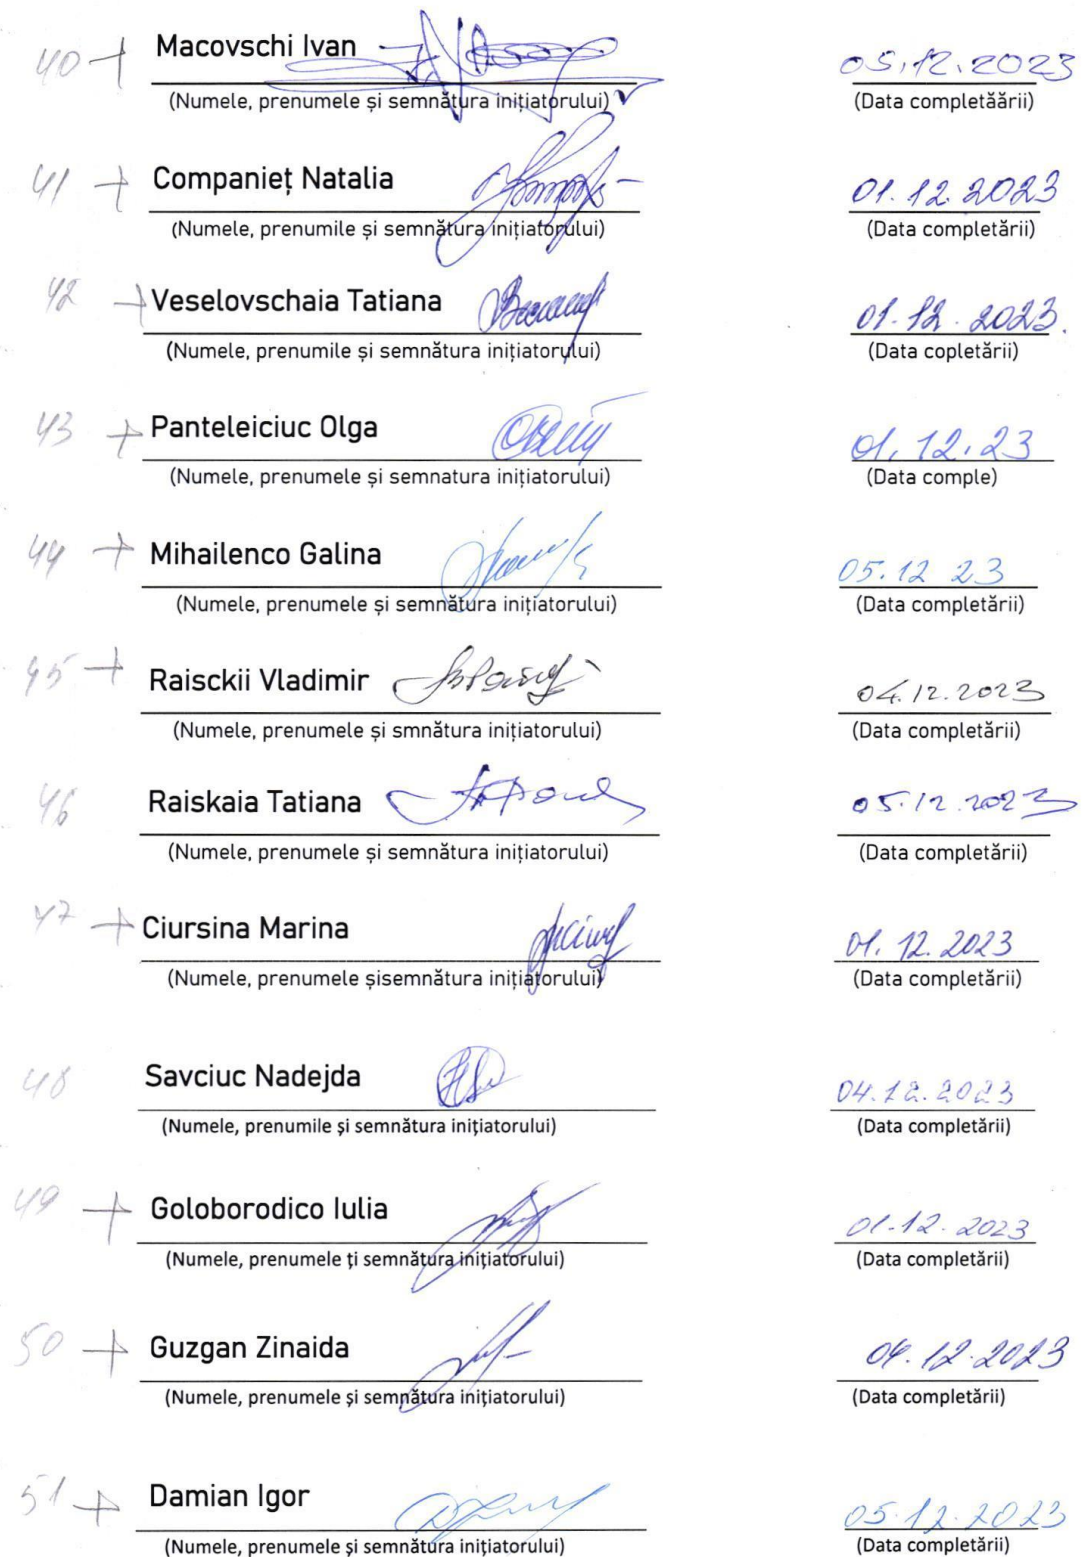 40 + Macovschi Ivan 05.12.2023
(Numele, prenumele și semnătura inițiatorului) (Data completăării)
41 + Companieț Natalia 01.12.2023
(Numele, prenumile și semnătura inițiatorului) (Data completării)
42 + Veselovschaia Tatiana 01.12.2023.
(Numele, prenumile și semnătura inițiatorului) (Data copletării)
43 + Panteleiciuc Olga 01.12.23
(Numele, prenumele și semnatura inițiatorului) (Data comple)
44 + Mihailenco Galina 05.12 23
(Numele, prenumele și semnătura inițiatorului) (Data completării)
45 + Raisckii Vladimir 04.12.2023
(Numele, prenumele și smnătura inițiatorului) (Data completării)
46 Raiskaia Tatiana 05.12.2023
(Numele, prenumele și semnătura inițiatorului) (Data completării)
47 + Ciursina Marina 01.12.2023
(Numele, prenumele șisemnătura inițiatorului) (Data completării)
48 Savciuc Nadejda 04.12.2023
(Numele, prenumile și semnătura inițiatorului) (Data completării)
49 + Goloborodico Iulia 01.12.2023
(Numele, prenumele ți semnătura inițiatorului) (Data completării)
50 + Guzgan Zinaida 04.12.2023
(Numele, prenumele și semnătura inițiatorului) (Data completării)
51 + Damian Igor 05.12.2023
(Numele, prenumele și semnătura inițiatorului) (Data completării)